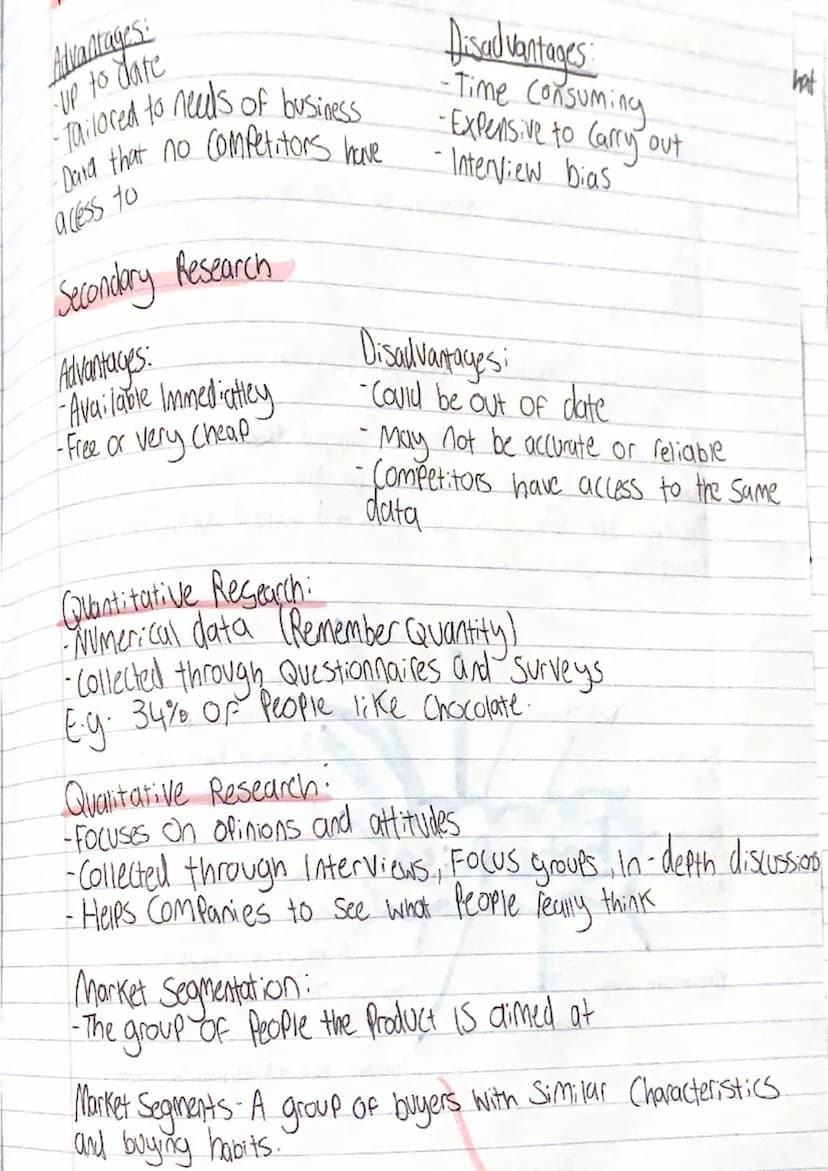 Advantages:
-Up to date
-Tailored to needs of business
-Data that no competitors have
acess to
Disadvantages:
-Time consuming
-Expensive to carry out
-Interview bias
hat
Secondary Research
Advantages:
-Available Immediatley
-Free or very cheap
Disadvantages:
-Could be out of date
-May not be accurate or reliable
-Competitors have access to the same
data
Quantitative Research:
-Numerical data (Remember Quantity)
-Collected through Questionnaires and Surveys
E.g. 34% of People like Chocolate.
Qualitative Research:
-Focuses on opinions and attitudes
-Collected through Interviews, Focus groups, In-depth discussion
-Helps Companies to see what People really think
Market Segmentation:
-The group of People the Product is aimed at
Market Segments-A group of buyers with Similar Characteristics
and buying habits.